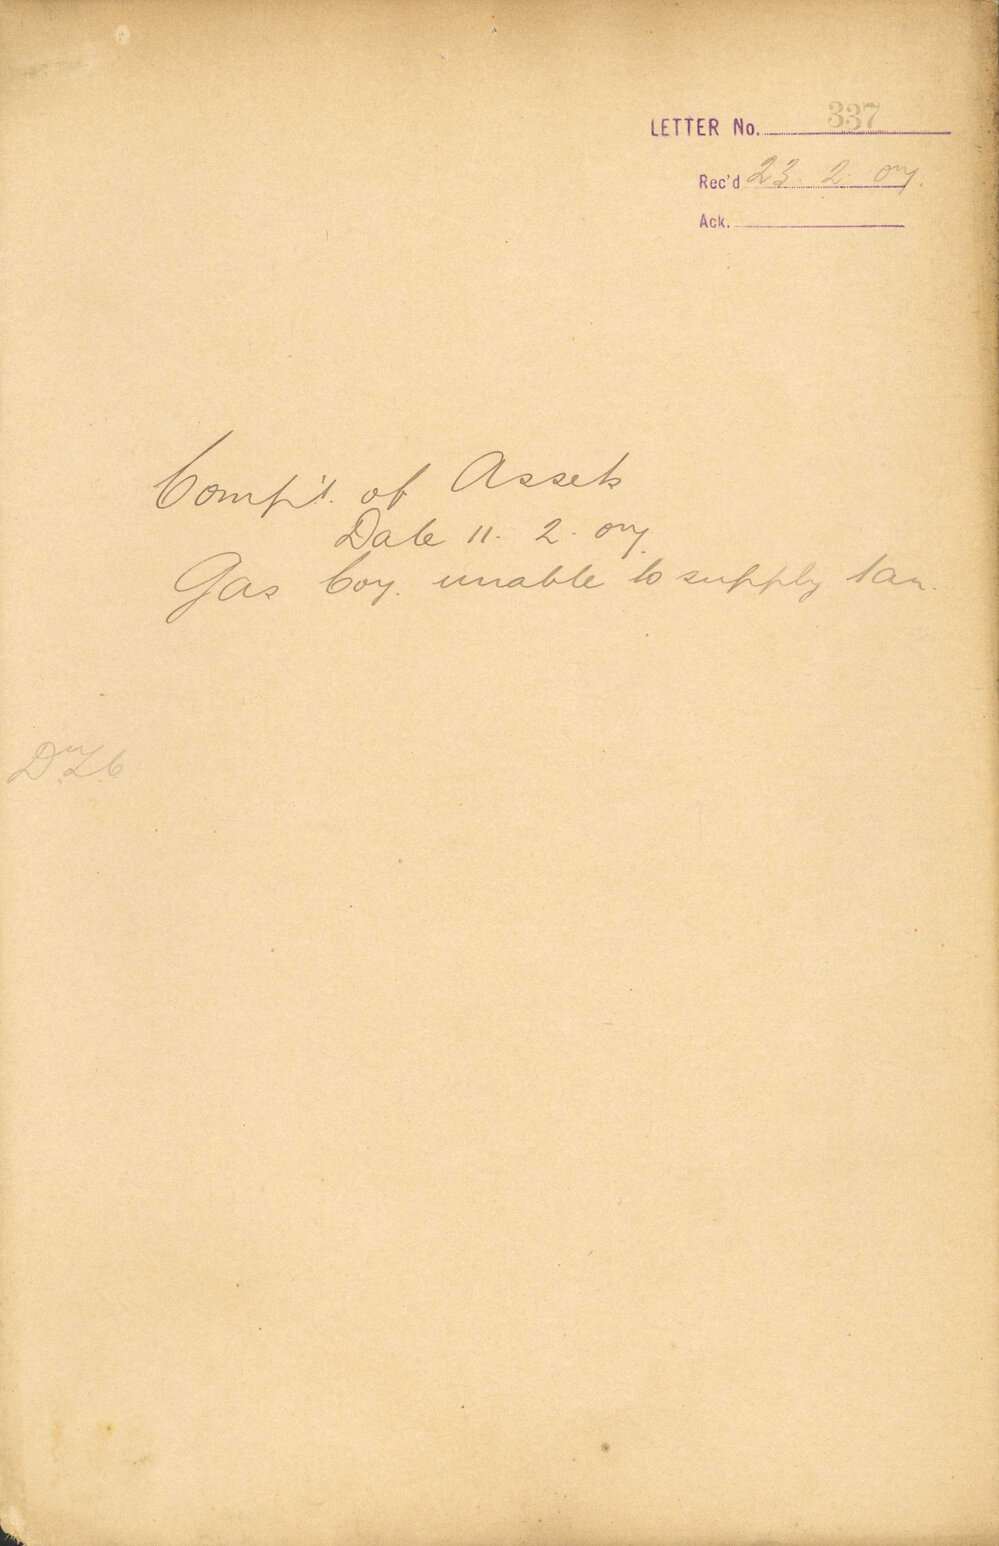 LETTER No. 337
Rec'd 23. 2. 07.
Ack.
Comp't. of Assets
Date 11. 2. 07.
Gas Coy. unable to supply tar.